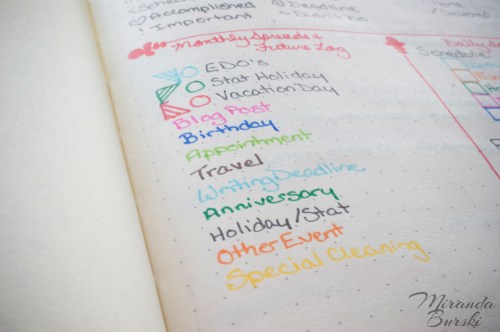 Accomplished Deadline
! Important
Monthly Spreads &
Future Log
Daily
Schedule
EDO's
Stat Holiday
Vacation Day
Blog Post
Birthday
Appointment
Travel
Writing Deadline
Anniversary
Holiday/Stat
Other Event
Special Cleaning
Miranda
Burski